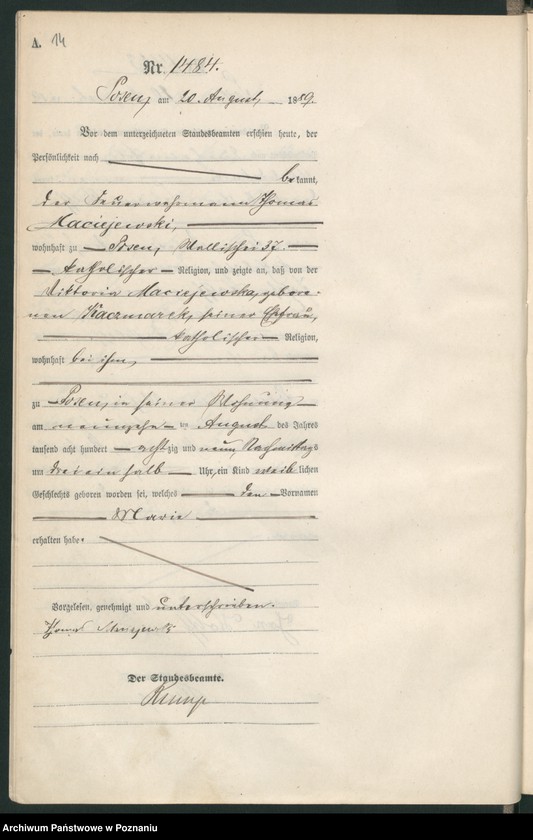 A. 14
Nr. 1484.
Posen, am 20. August 1889.
Vor dem unterzeichneten Standesbeamten erschien heute, der
Persönlichkeit nach
bekannt,
der Feuerwehrmann Thomas
Maciejewski,
wohnhaft zu Posen, Wallischei 37.
katholischer Religion, und zeigte an, daß von der
Viktoria Maciejewska, gebore-
nen Kaczmarek, seiner Ehefrau,
katholischer Religion,
wohnhaft bei ihm,
zu Posen, in seiner Wohnung
am neunzehn ten August des Jahres
tausend acht hundert achtzig und neun, Nachmittags
um drei ein halb Uhr, ein Kind weiblichen
Geschlechts geboren worden sei, welches den Vornamen
Marie
erhalten habe.
Vorgelesen, genehmigt und unterschrieben.
Thomas Maciejewski
Der Standesbeamte.
Archiwum Państwowe w Poznaniu